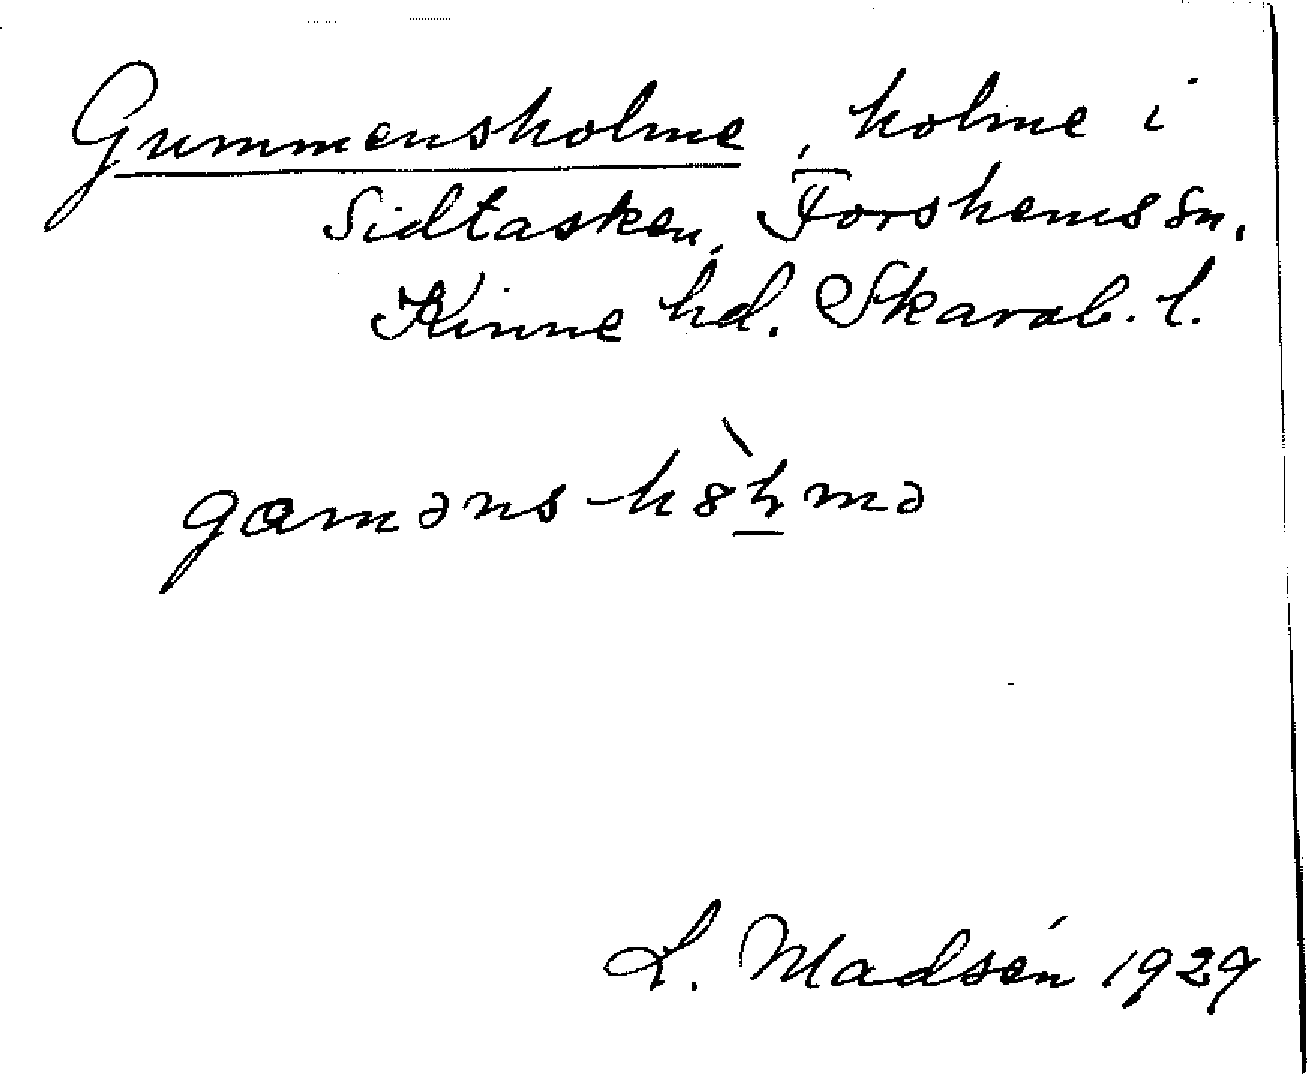 Gummensholme, holme i
Sidtasken, Forshems sn.
Kinne hd. Skarab. l.
gɷməns-hȯ̀ḻmə
L. Madsén 1929